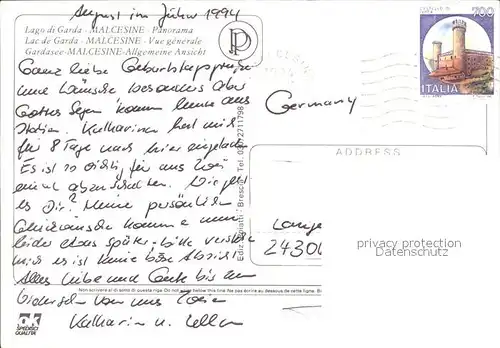 August im Jahre 1994
Lago di Garda - MALCESINE - Panorama
Lac de Garda - MALCESINE - Vue générale
Gardasee - MALCESINE - Allgemeine Ansicht
Ganz liebe Geburtstagsgrüße
und Wünsche besonders aber
Gottes Segen komm heute aus
Italien. Katharina hat mich
für 8 Tage nach hier eingeladen
Es ist so richtig für uns zwei
einmal abzuschalten. Wie geht
es Dir? Meine persönlichen
Glückwünsche kommen nun
leider etwas später - bitte versteh
mich es ist keine böse Absicht
Alles Liebe und Gute bis zum
Wiedersehn von uns Zwei
Katharina u.
Germany
700
ITALIA
ADDRESS
Lange
24306
privacy protection
Datenschutz
Brescia - Tel. 030/2711798
Non scrivere al di sotto di questa riga Do not write below this line Ne pas écrire au dessous de cette ligne